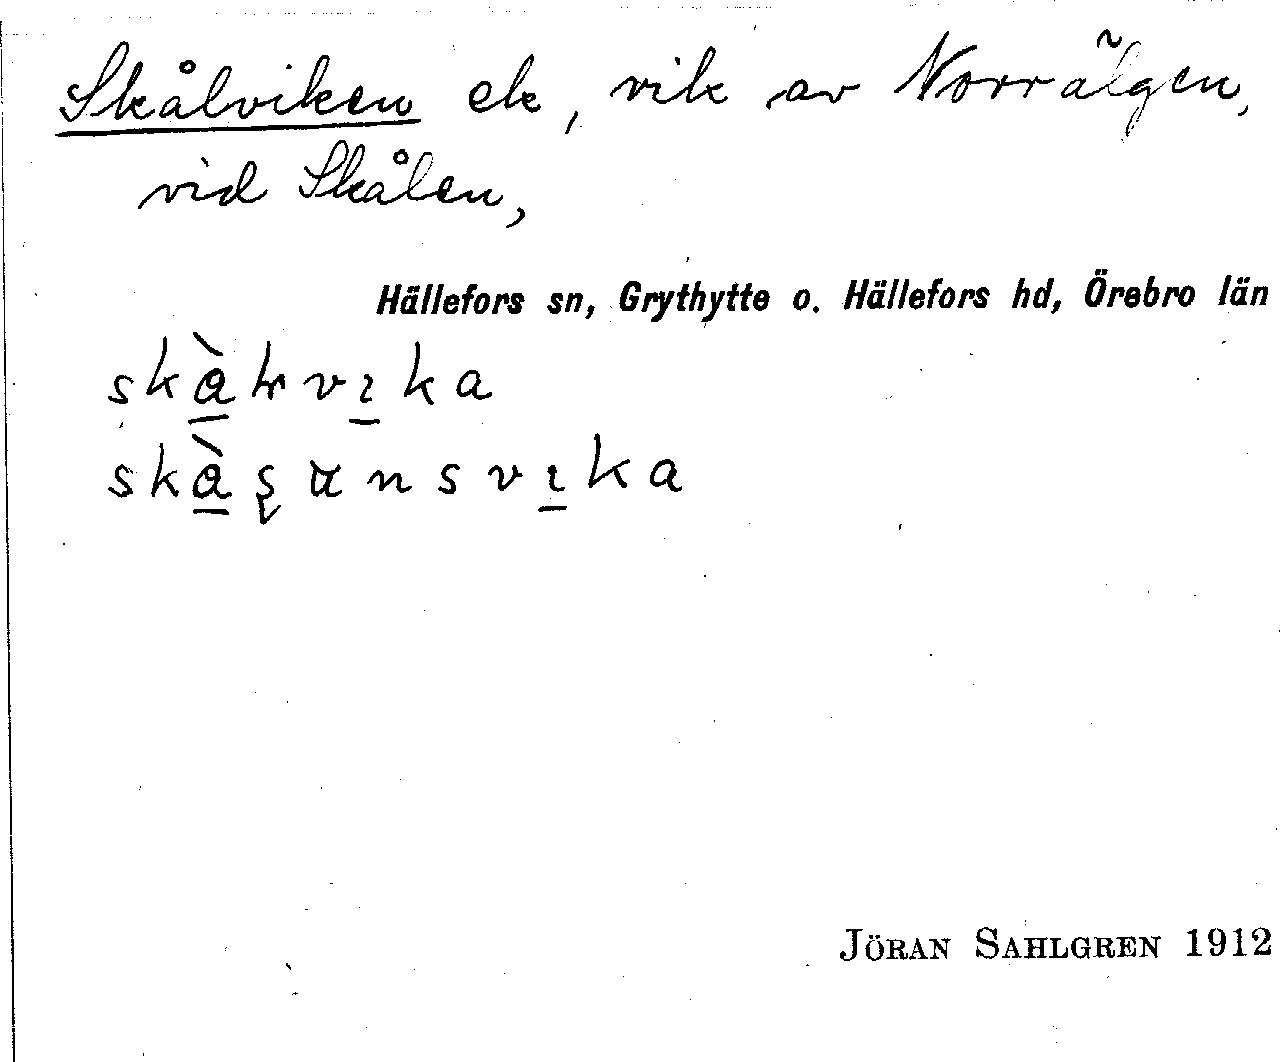 Skålviken ek, vik av Norrälgen,
vid Skålen,
Hällefors sn, Grythytte o. Hällefors hd, Örebro län
JÖRAN SAHLGREN 1912